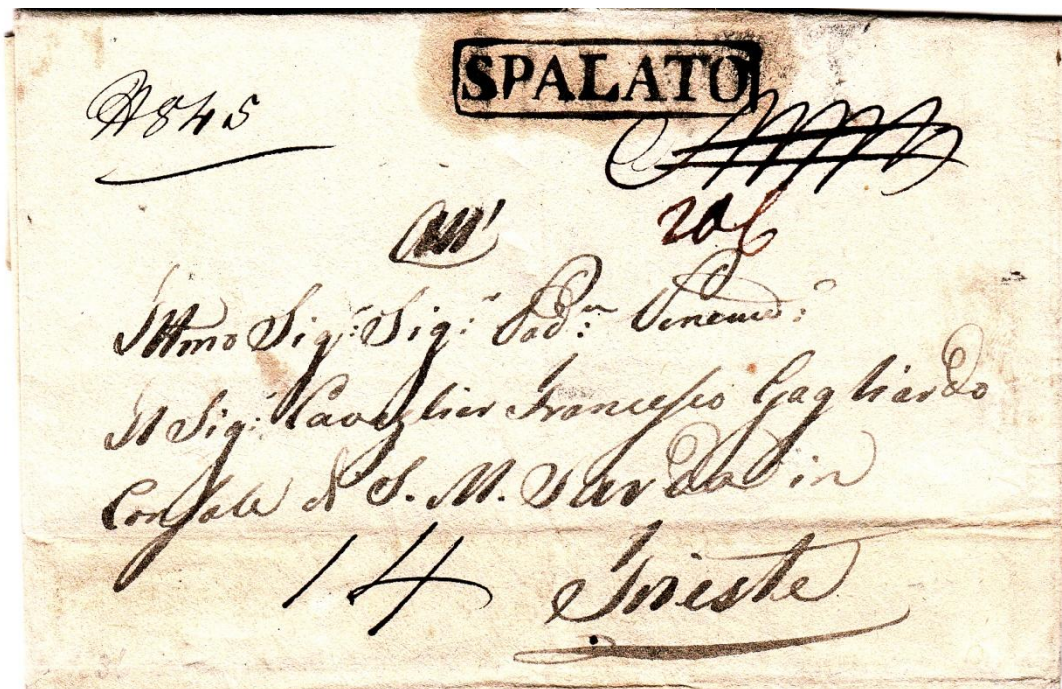 SPALATO
845
All'
Illmo Sig.r Sig.r Pad.n
Il Sig.r Cavaglier Francesco Gagliardo
Console di S. M. Sarda in
14 Trieste